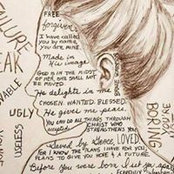 Free
forgiven
I have called
you by name,
you are mine.
Made in
his image
GOD IS IN THE MIDST
OF HER, SHE SHALL NOT
BE MOVED.
He delights in me
CHOSEN. WANTED. BLESSED.
He gives me peace.
YOU CAN DO ALL THINGS THROUGH
CHRIST WHO
accepted
STRENGTHENS YOU
Saved by Grace, LOVED
FOR I KNOW THE PLANS I HAVE FOR YOU
PLANS TO GIVE YOU HOPE & A FUTURE.
Before you were born I set you apart
FAILURE
WEAK
UGLY
USELESS
BORING